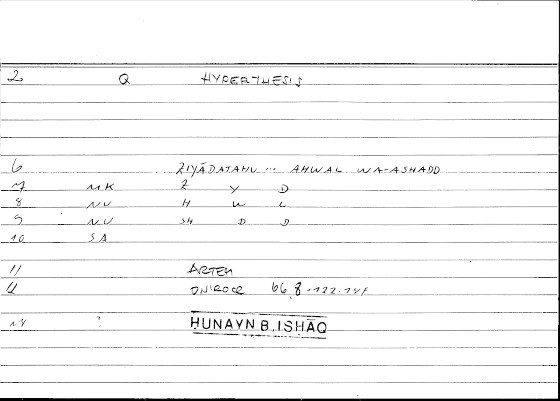 2 Q HYPERTHESIS
6 ZIYĀDATAHU ... AHWAL WA-ASHADD
7 MK Z Y D
8 NU H W L
9 NU SH D D
10 SA
11 ARTEM
12 ONIROCR 66,8-122.14f
14 ? ḤUNAYN B. ISḤĀQ